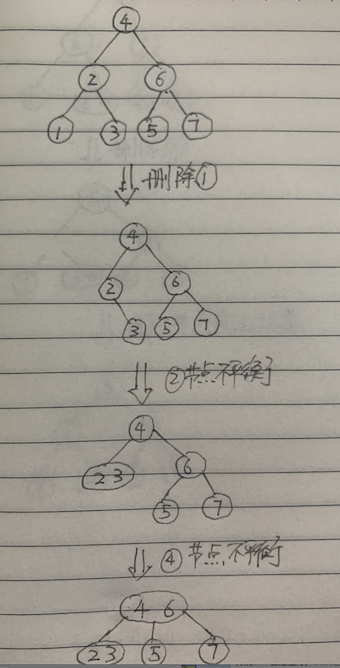 4
2 6
1 3 5 7
删除①
4
2 6
3 5 7
②节点不平衡了
4
2 3 6
5 7
④节点不平衡了
4 6
2 3 5 7